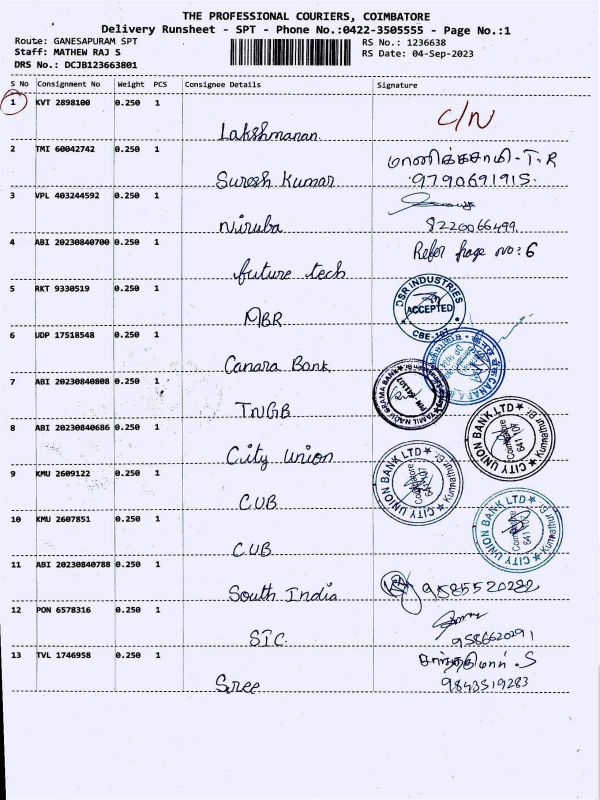 THE PROFESSIONAL COURIERS, COIMBATORE
Delivery Runsheet - SPT - Phone No.:0422-3505555 - Page No.:1
Route: GANESAPURAM SPT
RS No.: 1236638
Staff: MATHEW RAJ S
RS Date: 04-Sep-2023
DRS No.: DCJB123663801
S No Consignment No Weight PCS Consignee Details Signature
1 KVT 2898100 0.250 1
C/N
Lakshmanan
2 TMI 60042742 0.250 1
மாணிக்கசாமி - T.R
Suresh Kumar 9790691915.
3 VPL 403244592 0.250 1
Niruba 8220066499
4 ABI 20230840700 0.250 1
Refer page no: 6
future tech
5 RKT 9330519 0.250 1
DSR INDUSTRIES
ACCEPTED
CBE-107
MBR
6 UDP 17518548 0.250 1
Canara Bank
7 ABI 20230840808 0.250 1
TAMIL NADU GRAMA BANK
TNGB
8 ABI 20230840686 0.250 1
CITY UNION BANK LTD
Kunnathur Br
Coimbatore
641 107
City Union
9 KMU 2609122 0.250 1
CITY UNION BANK LTD
Kunnathur Br
Coimbatore
641 107
CUB
10 KMU 2607851 0.250 1
CITY UNION BANK LTD
Kunnathur Br
Coimbatore
641 107
CUB
11 ABI 20230840788 0.250 1
South India 9585520282
12 PON 6578316 0.250 1
STC. 9586620291
13 TVL 1746958 0.250 1
Sree 9843519283